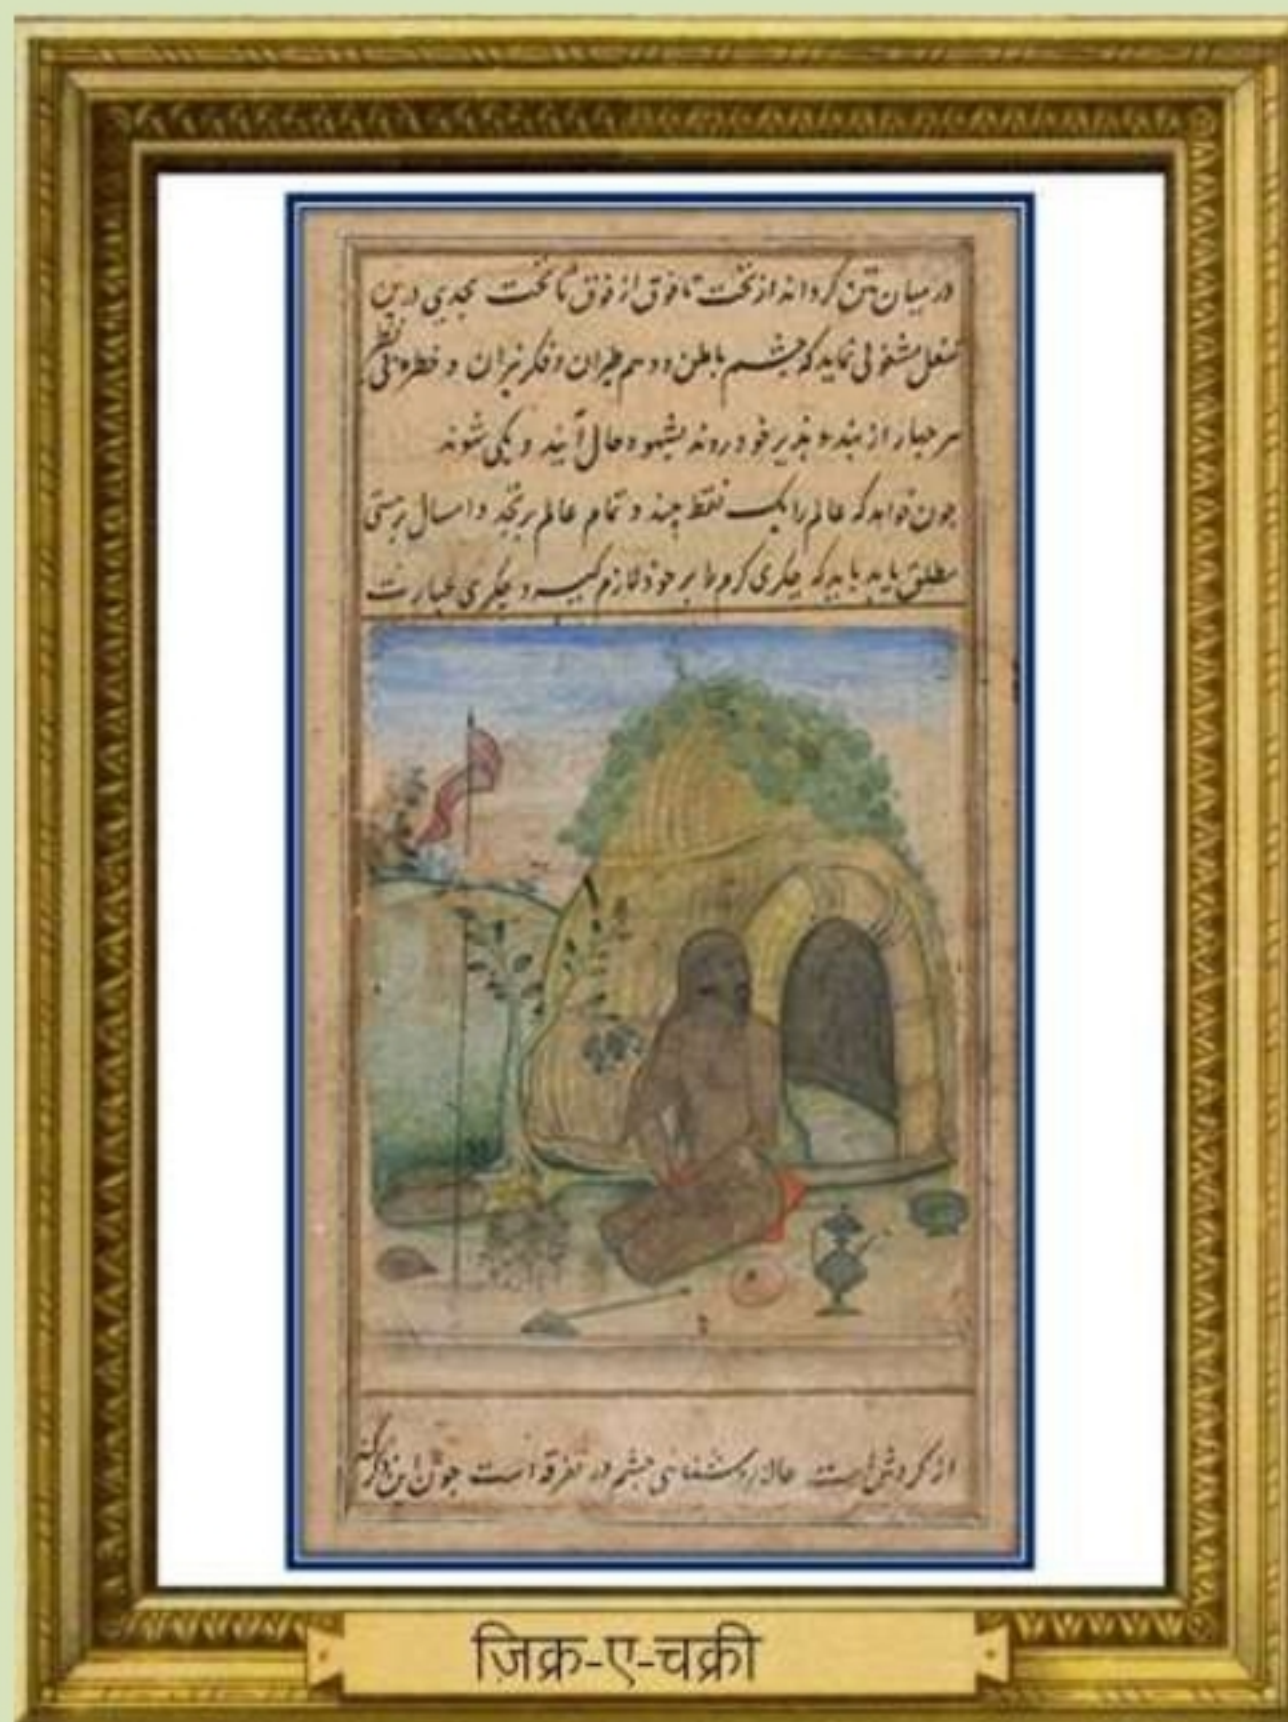 در میان تن گرداند از تخت تا فوق از فوق تا تخت بجدی درین
شغل مشغولی نماید که چشم باطن و وهم طیران و فکر نیران و خطره
هر چهار از بند خود روند بشهود حال آیند و یکی شوند
چون خواهد که عالم را یک نقطه بیند و تمام عالم و
مطلق یابد باید که چکری کرم را بر خود لازم گیرد و چکری عبارت
از گردش است حال روشنائی چشم در تفرقه است چون این ذکر
ज़िक्र-ए-चक्री